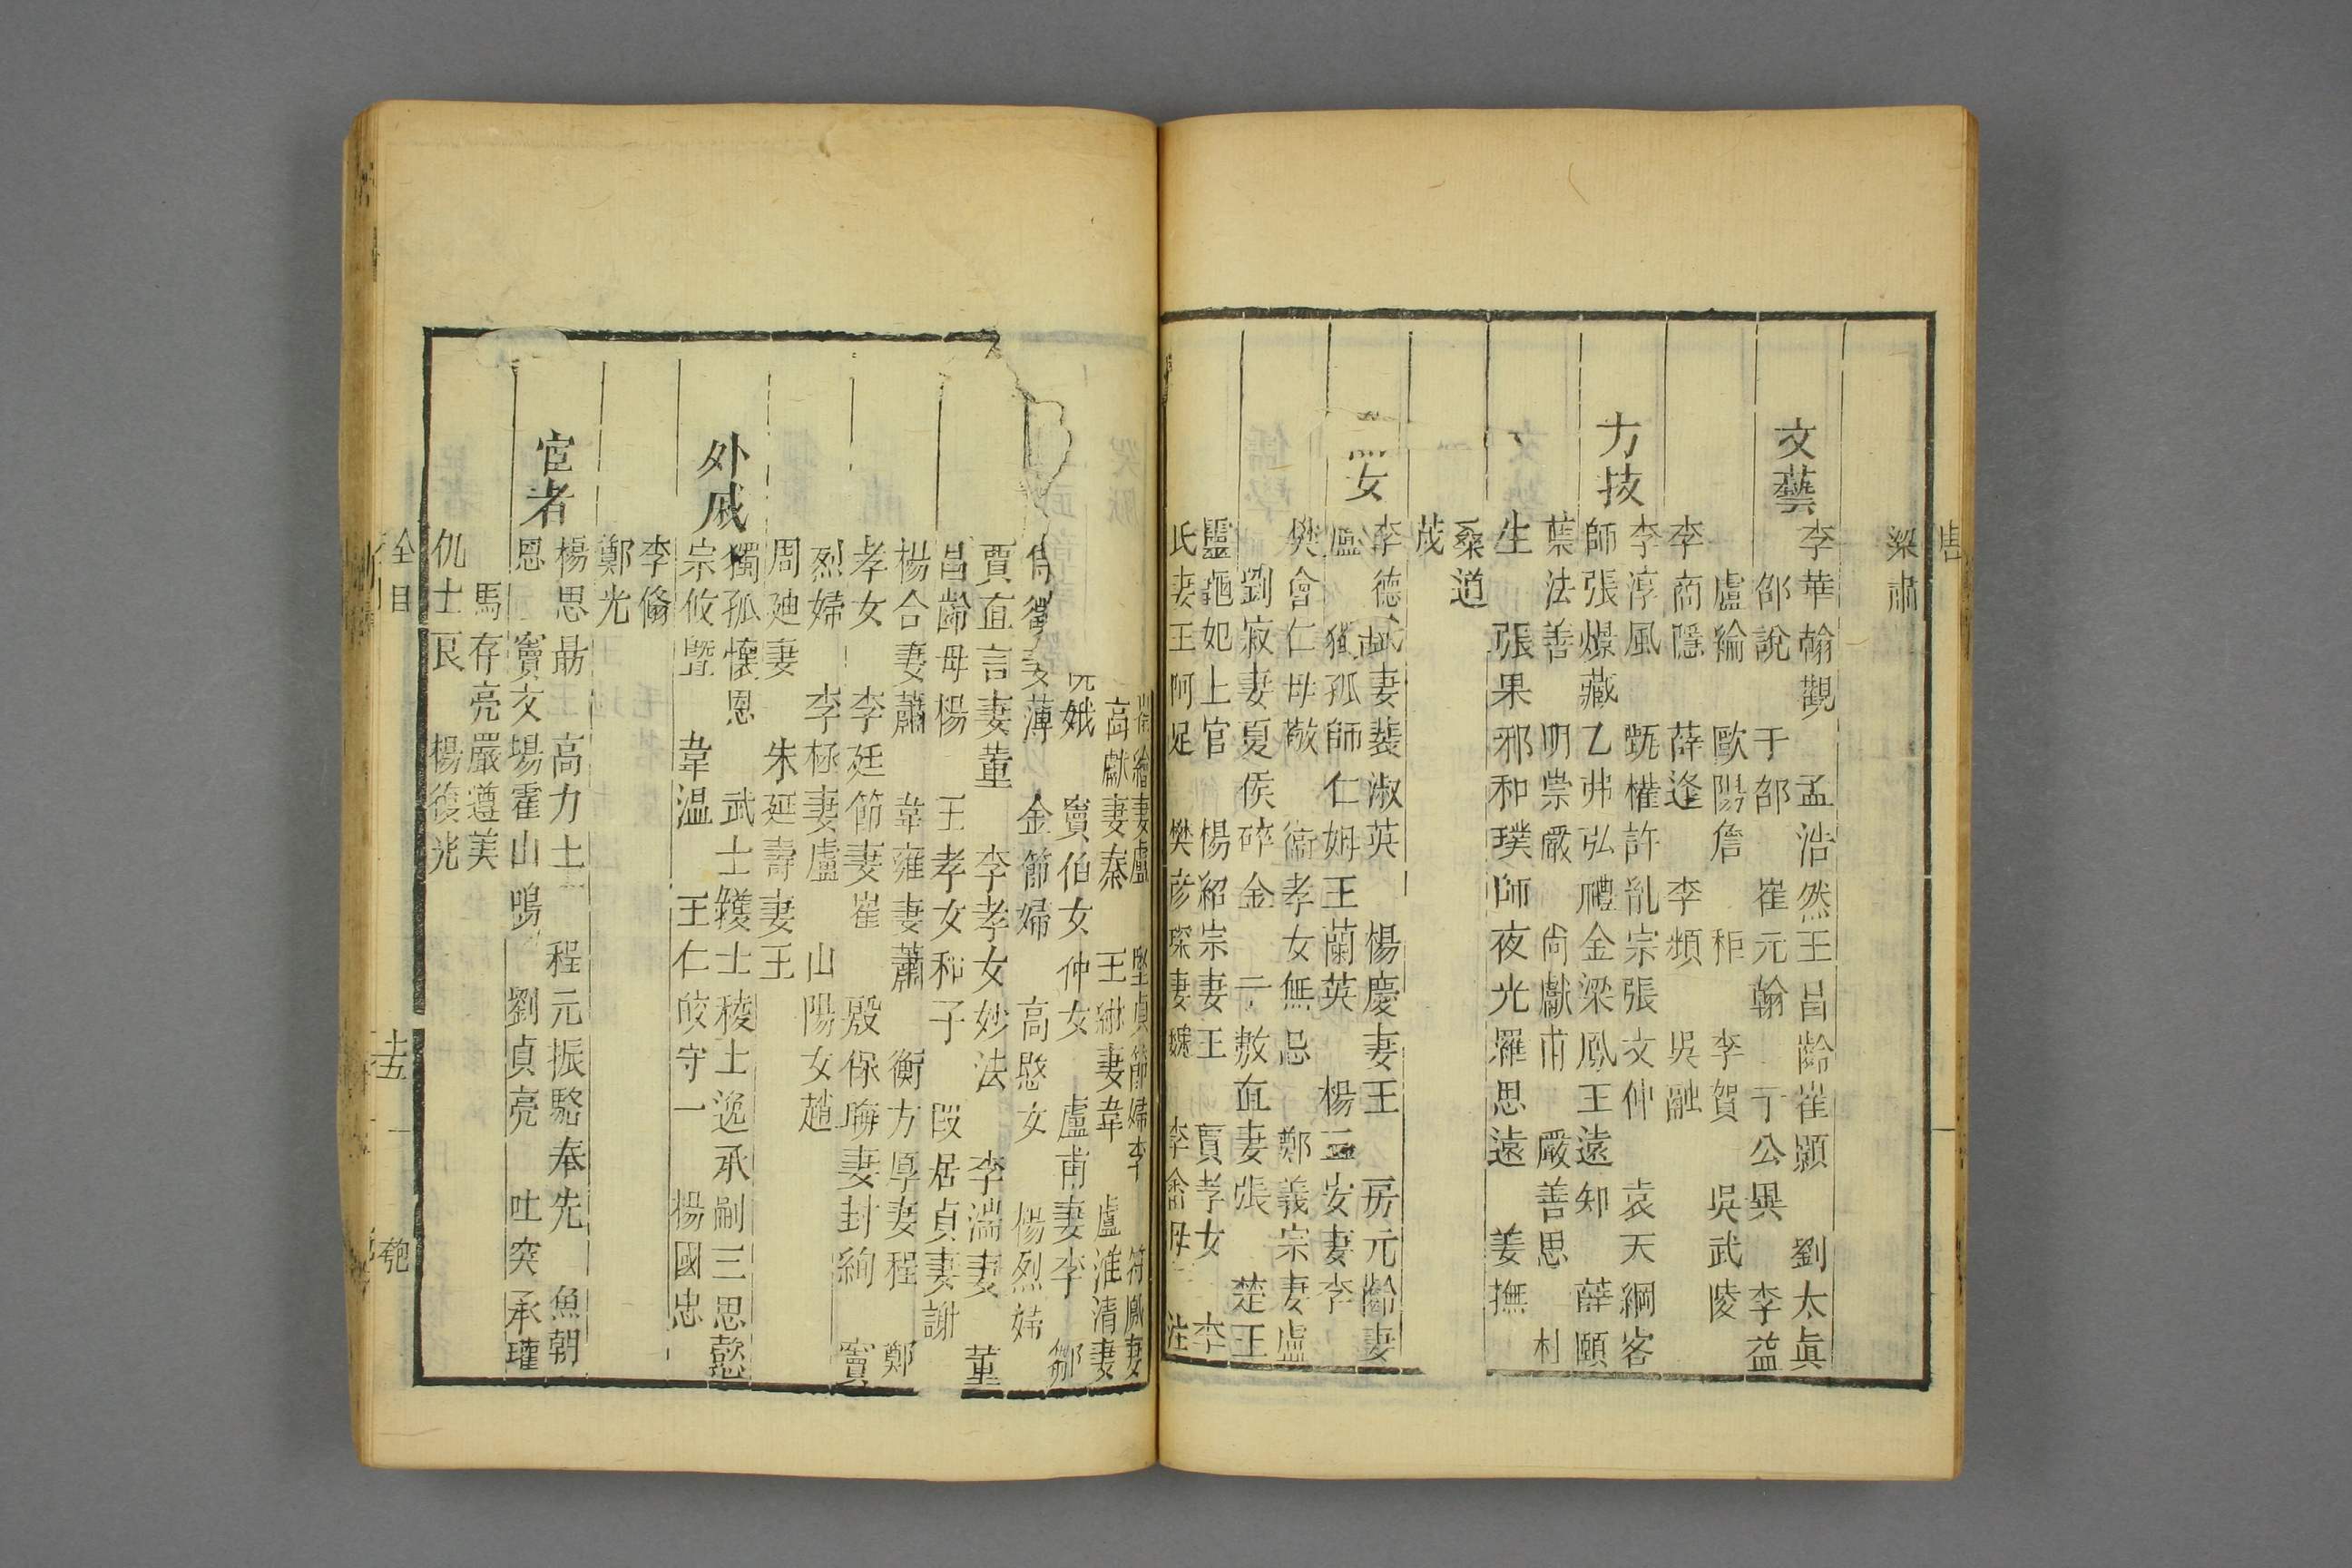 唐
梁肅
文藝
李華 翰 觀 孟浩然 王昌齡 崔顥 劉太眞
邵說 于邵 崔元翰 于公異 李益
盧綸 歐陽詹 秬 李賀 吳武陵
李商隱 薛逢 李頻 吳融
方技
李淳風 甄權 許胤宗 張文仲 袁天綱 客
師 張憬藏 乙弗弘禮 金梁鳳 王遠知 薛頤
葉法善 明崇儼 尚獻甫 嚴善思 杜
生 張果 邢和璞 師夜光 羅思遠 姜撫
桑道
茂
女
李德武妻裴淑英 楊慶妻王 房元齡妻
盧 獨孤師仁姆王蘭英 楊三安妻李
樊會仁母敬 衞孝女無忌 鄭義宗妻盧
劉寂妻夏侯碎金 于敏直妻張 楚王
靈龜妃上官 楊紹宗妻王 賈孝女 李
氏妻王阿足 樊彦琛妻魏 李畬母 汴
妻盧 堅貞節婦李 符鳳妻
高獻妻秦 王琳妻韋 盧淮清妻
娥 竇伯女仲女 盧甫妻李 鄒
待徵妻薄 金節婦 高愍女 楊烈婦
賈直言妻董 李孝女妙法 李湍妻 董
昌齡母楊 王孝女和子 段居貞妻謝
楊含妻蕭 韋雍妻蕭 衡方厚妻程 鄭
孝女 李廷節妻崔 殷保晦妻封絢 竇
烈婦 李拯妻盧 山陽女趙
周迪妻 朱延壽妻王
外戚
獨孤懷恩 武士彠 士稜 士逸 承嗣 三思 懿
宗 攸暨 韋溫 王仁皎 守一 楊國忠
李脩
鄭光
宦者
楊思勗 高力士 程元振 駱奉先 魚朝
恩 竇文場 霍山鳴 劉貞亮 吐突承璀
馬存亮 嚴遵美
仇士良 楊復光
全目
十五